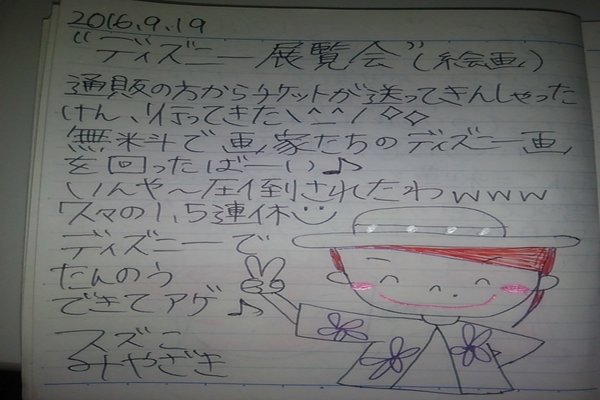 2016.9.19
"ディズニー展覧会"(絵画)
通販の方からチケットが送ってきんしゃった
けん、行ってきた\^^/◇◇
無料で画家たちのディズニー画
を回ったばーい♪
いんや〜圧倒されたわwww
久々の1,5連休
ディズニーで
たんのう
できてアゲ♪
スズこ
みやざき